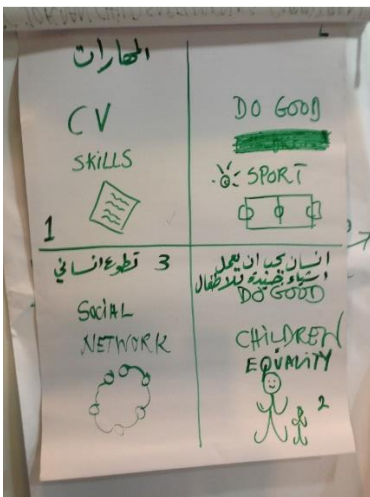 المهارات
CV
SKILLS
1
DO GOOD
SPORT
3 تطوع انساني
SOCIAL
NETWORK
انسان يحب ان يعمل
اشياء جيدة للاطفال
DO GOOD
CHILDREN
EQUALITY
2